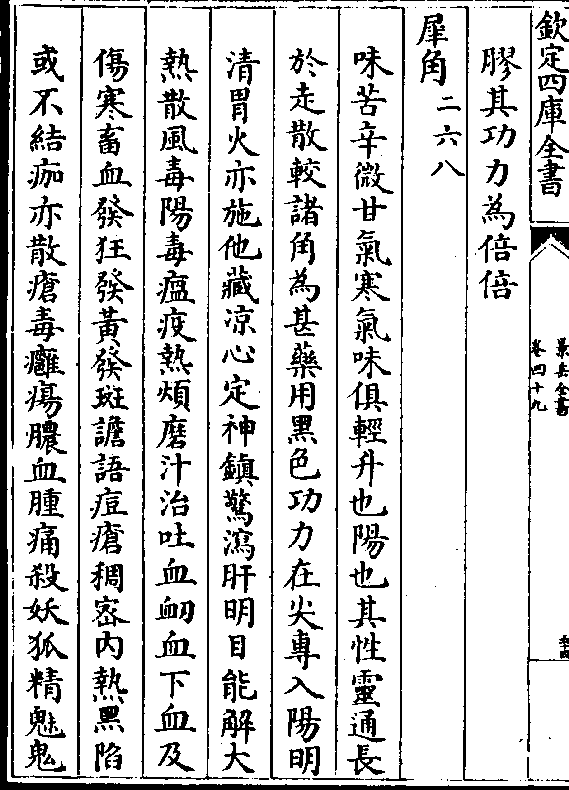 欽定四庫全書
景岳全書
卷四十九
膠其功力為倍倍
犀角二六八
味苦辛微甘氣寒氣味俱輕升也陽也其性靈通長
於走散較諸角為甚藥用黑色功力在尖專入陽明
清胃火亦施他藏涼心定神鎮驚瀉肝明目能解大
熱散風毒陽毒瘟疫熱煩磨汁治吐血衂血下血及
傷寒畜血發狂發黃發斑譫語痘瘡稠宻内熱黑陷
或不結痂亦散瘡毒癰瘍膿血腫痛殺妖狐精魅鬼